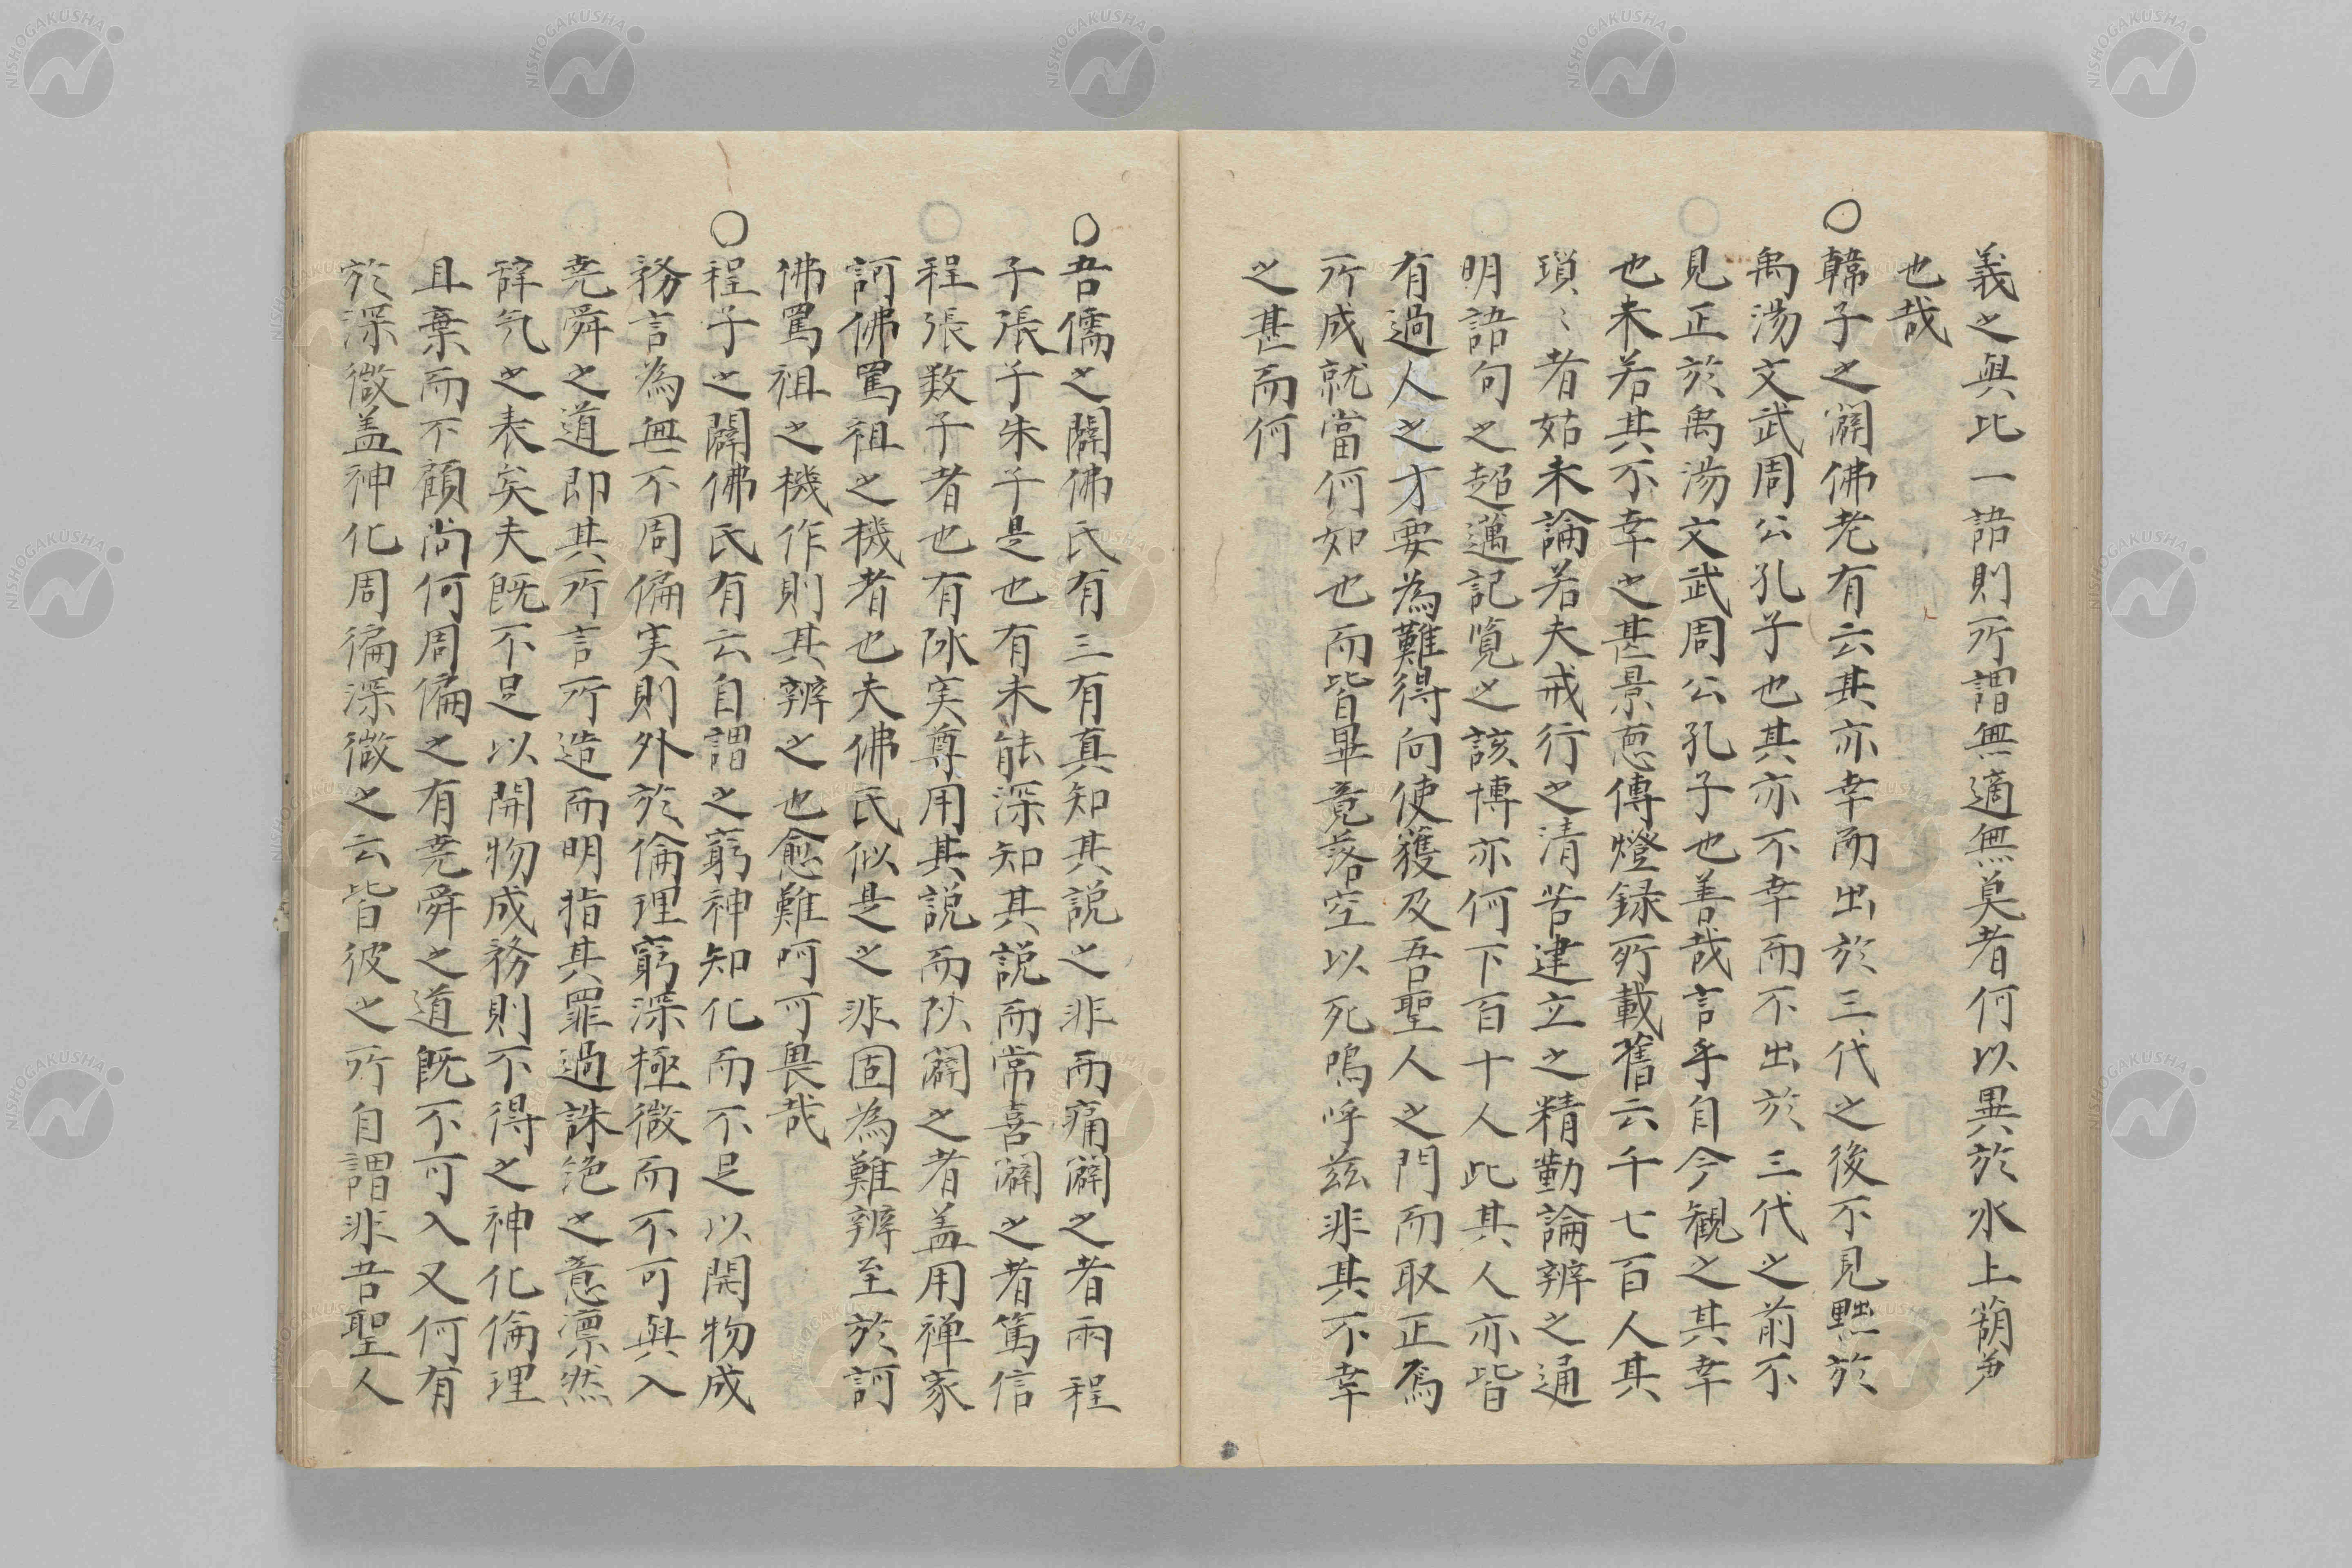 義之與比一語則所謂無適無莫者何以異於水上葫芦
也哉
○韓子之闢佛老有云其亦幸而出於三代之後不見黜於
禹湯文武周公孔子也其亦不幸而不出於三代之前不
見正於禹湯文武周公孔子也善哉言乎自今観之其幸
也未若其不幸之甚景悳傳燈録所載舊六千七百人其
瑣〻者姑未論若夫戒行之清苦建立之精勤論辨之通
明語句之超邁記覧之該博亦何下百十人此其人亦皆
有過人之才要為難得向使獲及吾聖人之門而取正焉
所成就當何如也而皆畢竟落空以死嗚呼茲非其不幸
之甚而何
○吾儒之闢佛氏有三有真知其説之非而痛闢之者兩程
子張子朱子是也有未能深知其説而常喜闢之者篤信
程張数子者也有阥実尊用其説而阦闢之者盖用禅家
訶佛罵祖之機者也夫佛氏似是之非固為難辨至於訶
佛罵祖之機作則其辨之也愈難吁可畏哉
○程子之闢佛氏有云自謂之窮神知化而不足以開物成
務言為無不周徧実則外於倫理窮深極微而不可與入
尭舜之道即其所言所造而明指其罪過誅絶之意凛然
辞気之表矣夫既不足以開物成務則不得之神化倫理
且棄而不顧尚何周徧之有尭舜之道既不可入又何有
於深微盖神化周徧深微之云皆彼之所自謂非吾聖人